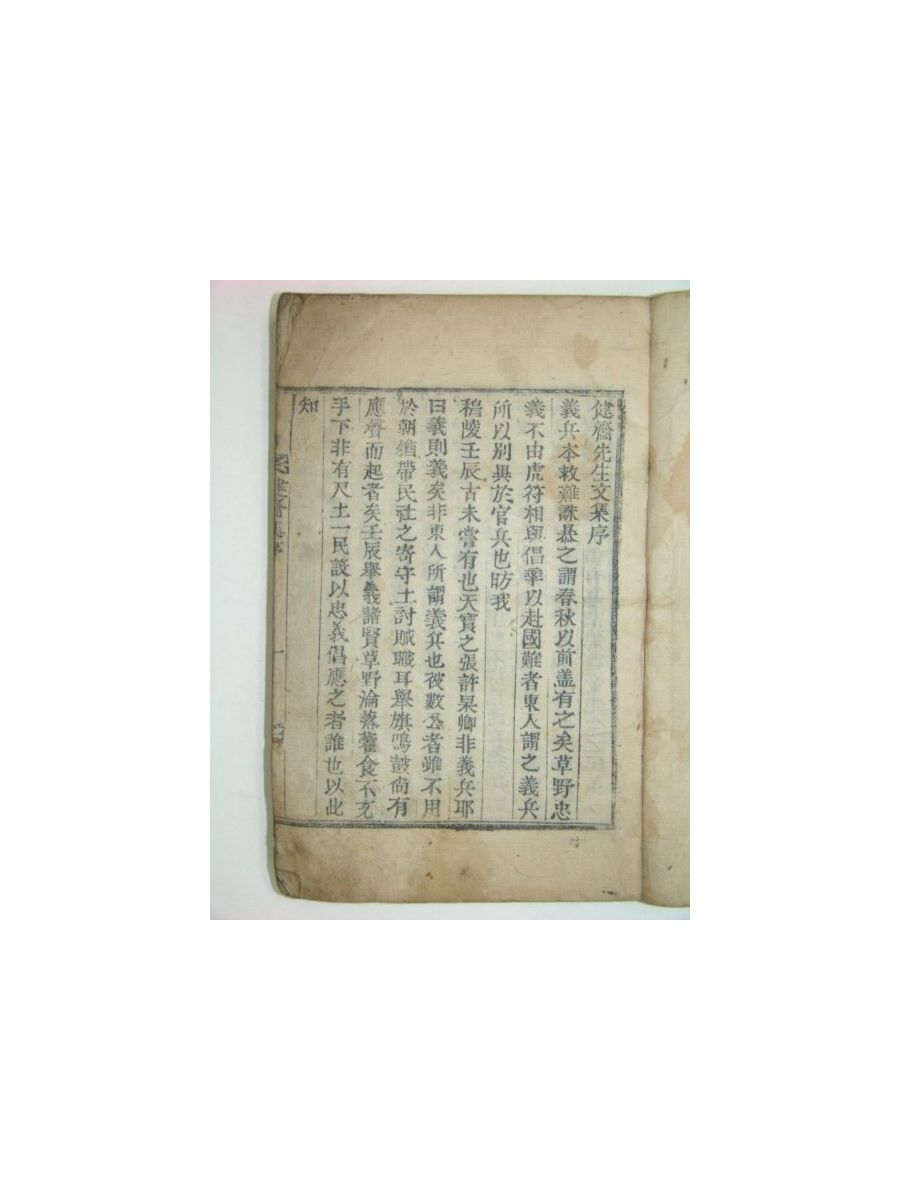 健齋先生文集序
義兵本救難誅暴之謂春秋以前盖有之矣草野忠
義不由虎符相與倡率以赴國難者東人謂之義兵
所以別異於官兵也昉我
穆陵壬辰古未嘗有也天寶之張許杲卿非義兵耶
曰義則義矣非東人所謂義兵也彼數公者雖不用
於朝猶帶民社之寄守土討賊職耳舉旗鳴鼓尙有
應聲而起者矣壬辰舉義諸賢草野淪落藿食不充
手下非有尺土一民設以忠義倡應之者誰也以此
知
健齋集序
一